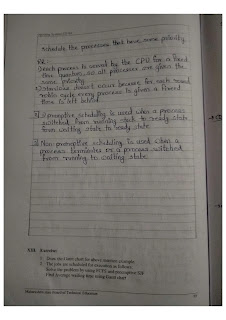 schedule the processes that have same priority.
RR :
i) each process is served by the CPU for a fixed
time quantum, so all processes are given the
same priority.
ii) starvation doesn't occur because for each round
robin cycle every process is given a fixed
time to
preemptive scheduling is used when a process
switched from running state to ready state
from waiting state to ready state.
Non-preemptive scheduling is used when a
process terminates or a process switched
from running to waiting state.
XIII. Exercise
1. Draw the Gantt chart for above
2. The jobs are scheduled for execution as follows
Solve the problem by using FCFS and preemptive SJF
Find average waiting time using Gantt chart
Maharashtra State Board of Technical Education